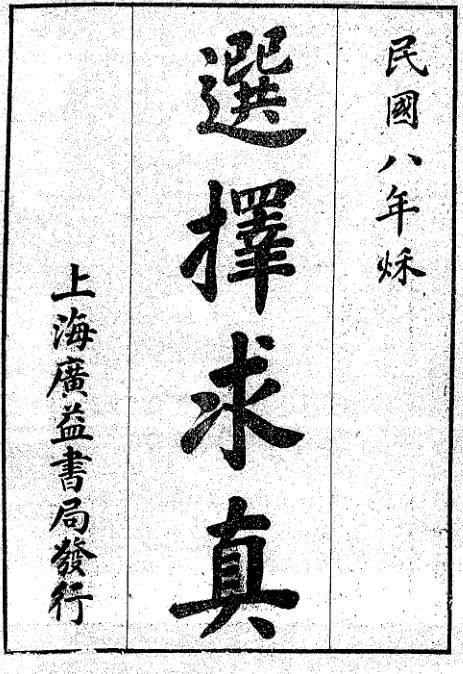 民國八年秌
選擇求真
上海廣益書局發行